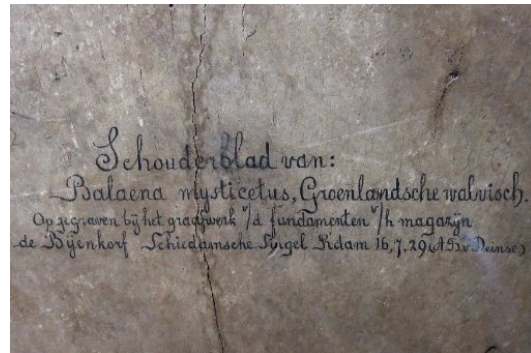 Schouderblad van:
Balaena mysticetus, Groenlandsche walvisch.
Opgegraven bij het graafwerk v/d fundamenten v/h magazijn
de Bijenkorf Schiedamsche Singel R'dam 16.7.29 (A.B.v. Deinse)